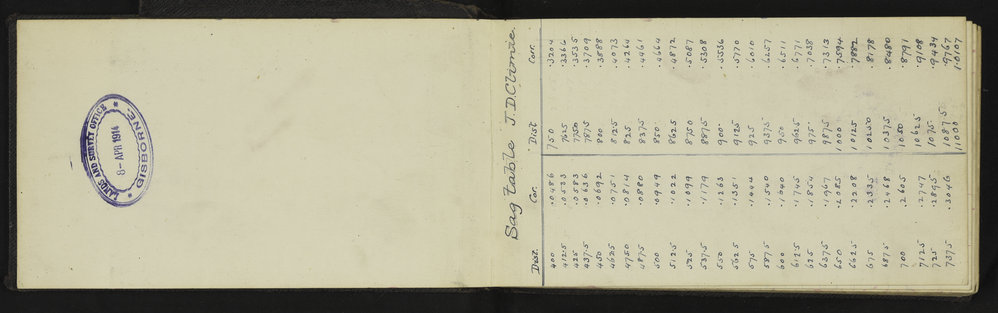 LANDS AND SURVEY OFFICE
8 - APR 1914
GISBORNE.
Sag table J.D.Climie.
Dist. Cor. Dist Corr.
400 .0486 750 .3204
412.5 .0533 7625 .3366
425 .0583 7750 .3535
437.5 .0636 7875 .3709
450 .0692 800 .3888
4625 .0751 8125 .4073
4750 .0814 825 .4264
4875 .0880 8375 .4461
500 .0949 850. .4664
5125 .1022 8625 .4872
525 .1099 8750 .5087
5375 .1179 8875 .5308
550 .1263 900. .5536
5625 .1351 9125 .5770
575 .1444 925 .6010
5875 .1540 9375 .6257
600 .1640 950 .6511
6125 .1745 9625 .6771
625 .1854 975 .7038
6375 .1967 9875 .7313
650 .2085 1000 .7594
6625 .2208 10125 .7882
675 .2335 10250 .8178
6875 .2468 10375 .8480
700 .2605 1050 .8791
7125 .2747 10625 .9108
725 .2895 1075. .9434
7375 .3046 10875 .9767
11000 1.0107